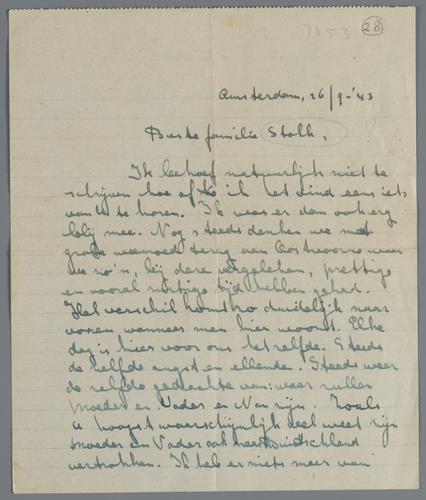 7853 28
Amsterdam, 26/9-'43
Beste familie Stolk,
Ik behoef natuurlijk niet te
schrijven hoe ik het vind eens iets
van U te horen. Ik was er dan ook erg
blij mee. Nog steeds denken we met
grote weemoed terug aan Oostvoorne waar
we zo'n, bij deze vergeleken, prettige
en vooral rustige tijd hebben gehad.
Het verschil komt zo duidelijk naar
voren wanneer men hier woont. Elke
dag is hier voor ons hetzelfde. Steeds
dezelfde angst en ellende. Steeds weer
dezelfde gedachte van: waar zullen
Moeder en Vader en Nan zijn. Zoals
U hoogst waarschijnlijk wel weet zijn
moeder en Vader ook naar Duitschland
vertrokken. Ik heb er niets meer van